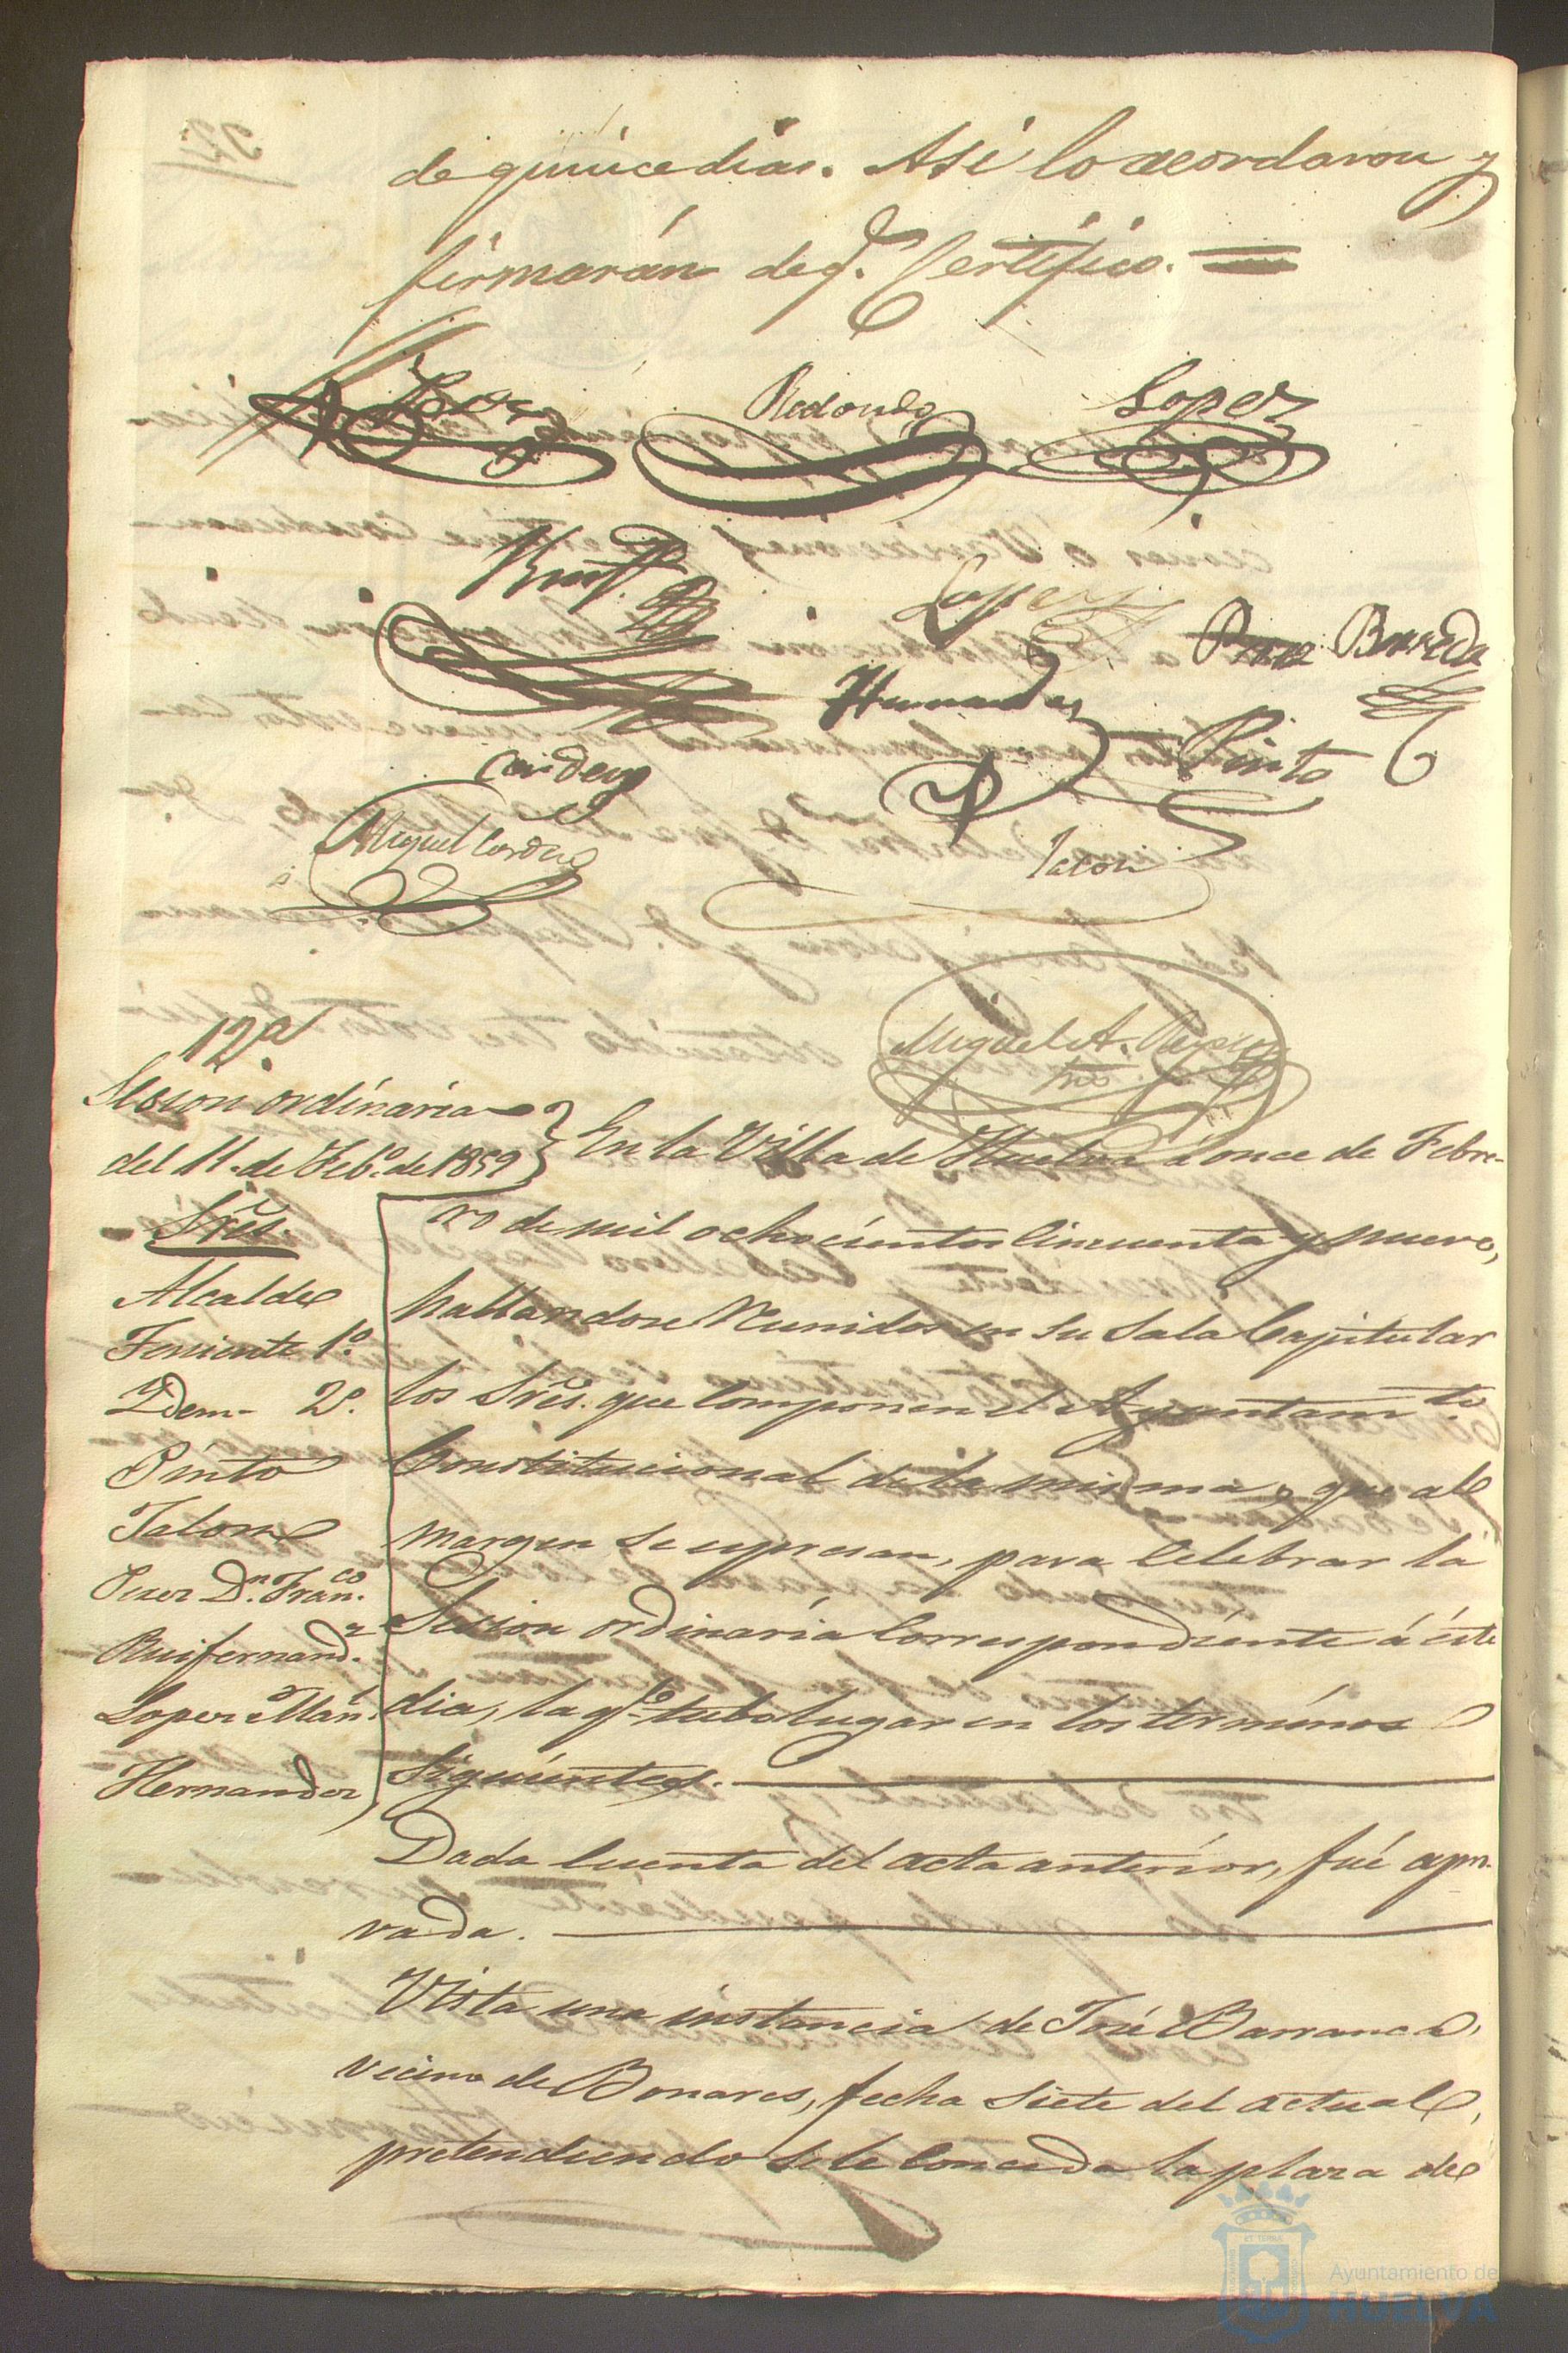 de quince dias. Asi lo acordaron y
firmarán de q.e Certifico. =
Redondo
Lopez
Lopez
Perez Barreda
Hernandez
Pinto
Cordero
Miguel Cordero
Talon
Miguel A.
12ª
Sesion ordinaria
del 11. de Feb.o de 1859
Sres.
Alcalde
Teniente 1º.
Idem 2º.
Pinto
Talon
Perez D.n Fran.co
Ruifernand.z
Lopez Man.l
Hernandez
En la Villa de Huelva á once de Febre-
ro de mil ochocientos Cincuenta y nueve,
hallandose Reunidos en su Sala Capitular
los Sres. que Componen el Ayuntam.to
Constitucional de la misma, que al
margen se espresan, para Celebrar la
Sesion ordinaria Correspondiente á éste
dia, la q.e tubo lugar en los terminos
Siguientes.
Dada Cuenta del acta anterior, fué apro-
vada.
Vista una instancia de José Barranca,
vecino de Bonares, fecha Siete del actual,
pretendiendo Se le Conceda la plaza de
Ayuntamiento de
HUELVA